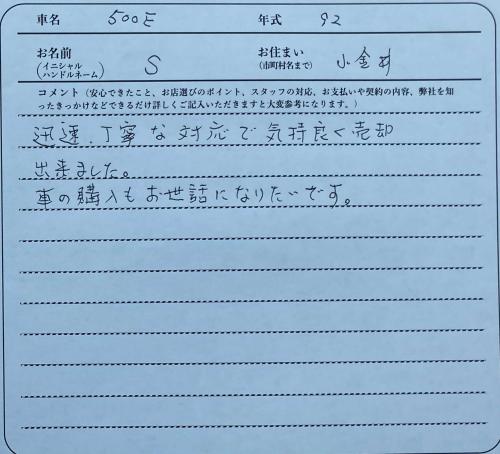 車名 500E 年式 92
お名前 (イニシャル ハンドルネーム) S お住まい (市町村名まで) 小金井
コメント（安心できたこと、お店選びのポイント、スタッフの対応、お支払いや契約の内容、弊社を知
ったきっかけなどできるだけ詳しくご記入いただきますと大変参考になります。）
迅速、丁寧な対応で気持良く売却
出来ました。
車の購入もお世話になりたいです。